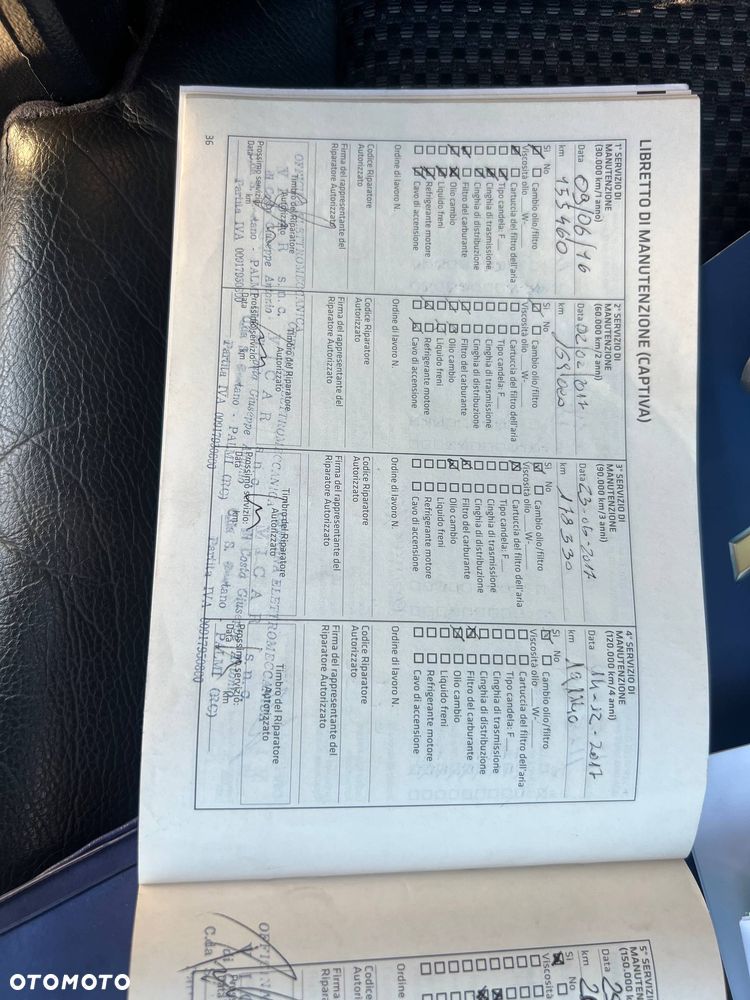 LIBRETTO DI MANUTENZIONE (CAPTIVA)
1° SERVIZIO DI
MANUTENZIONE
(30.000 km/1 anno)
Data 09/06/16
km 155460
Sì No
Cambio olio/filtro
Viscosità olio W-
Cartuccia del filtro dell'aria
Tipo candela: F
Cinghia di trasmissione
Cinghia di distribuzione
Filtro del carburante
Olio cambio
Liquido freni
Refrigerante motore
Cavo di accensione
Ordine di lavoro N.
Codice Riparatore
Autorizzato
Firma del rappresentante del
Riparatore Autorizzato
Timbro del Riparatore
Autorizzato
Prossimo servizio:
Data km
Partita IVA
2° SERVIZIO DI
MANUTENZIONE
(60.000 km/2 anni)
Data 02/02/2017
km
Sì No
Cambio olio/filtro
Viscosità olio W-
Cartuccia del filtro dell'aria
Tipo candela: F
Cinghia di trasmissione
Cinghia di distribuzione
Filtro del carburante
Olio cambio
Liquido freni
Refrigerante motore
Cavo di accensione
Ordine di lavoro N.
Codice Riparatore
Autorizzato
Firma del rappresentante del
Riparatore Autorizzato
Timbro del Riparatore
Autorizzato
Prossimo servizio:
Data km
Partita IVA
3° SERVIZIO DI
MANUTENZIONE
(90.000 km/3 anni)
Data 23-06-2017
km 178330
Sì No
Cambio olio/filtro
Viscosità olio W-
Cartuccia del filtro dell'aria
Tipo candela: F
Cinghia di trasmissione
Cinghia di distribuzione
Filtro del carburante
Olio cambio
Liquido freni
Refrigerante motore
Cavo di accensione
Ordine di lavoro N.
Codice Riparatore
Autorizzato
Firma del rappresentante del
Riparatore Autorizzato
Timbro del Riparatore
Autorizzato
Prossimo servizio:
Data km
Partita IVA
4° SERVIZIO DI
MANUTENZIONE
(120.000 km/4 anni)
Data 14-12-2017
km
Sì No
Cambio olio/filtro
Viscosità olio W-
Cartuccia del filtro dell'aria
Tipo candela: F
Cinghia di trasmissione
Cinghia di distribuzione
Filtro del carburante
Olio cambio
Liquido freni
Refrigerante motore
Cavo di accensione
Ordine di lavoro N.
Codice Riparatore
Autorizzato
Firma del rappresentante del
Riparatore Autorizzato
Timbro del Riparatore
Autorizzato
Prossimo servizio:
Data km
36
5° SERVIZ
MANUTEN
(150.000
Data
km
Sì No
Viscosità
Ordine
Codice
Autoriz
Firma
Ripara
OFFICIN
C.da
OTOMOTO